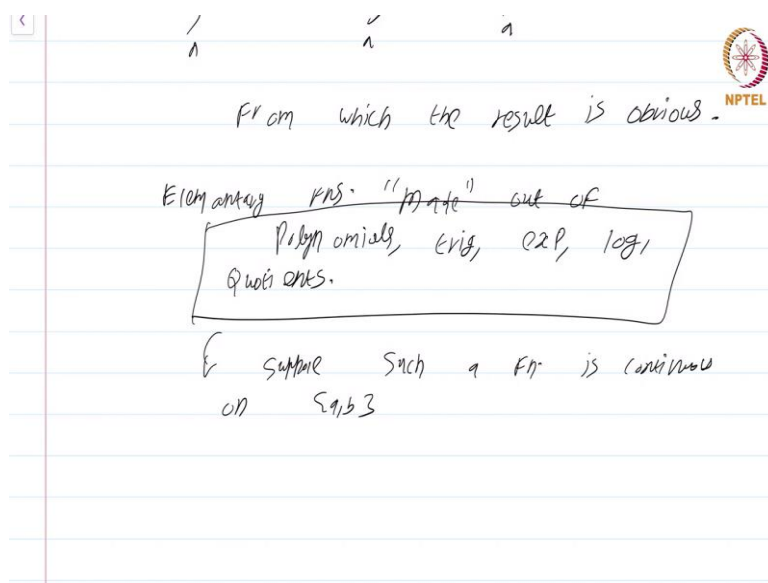 a a a
NPTEL
From which the result is obvious.
Elementary Fns. "Made" out of
Polynomials, trig, exp, log,
Quotients.
Suppose Such a Fn. is continuous
on [a,b]